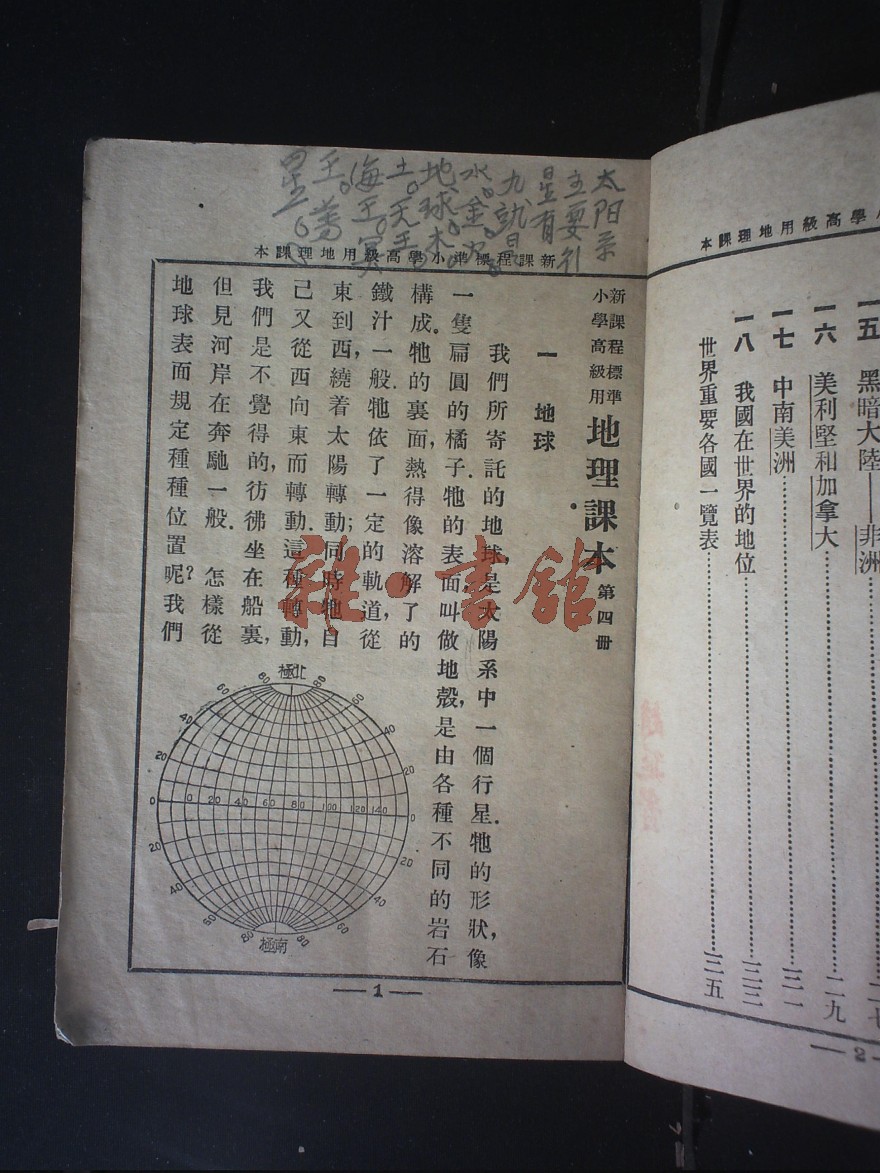 太阳系
主要行
星有
九就是
水。金。火。
地球。木。
土。天王。
海王。冥
王。
星。
本課理地用級高學小準標程課新
新課程標準
小學高級用
地理課本 第四冊
一 地球
我們所寄託的地球,是太陽系中一個行星.牠的形狀,像
一隻扁圓的橘子.牠的表面叫做地殼,是由各種不同的岩石
構成.牠的裏面,熱得像溶解了的
鐵汁一般.牠依了一定的軌道,從
東到西,繞着太陽轉動;同時牠自
己又從西向東而轉動.這種轉動,
我們是不覺得的,彷彿坐在船裏,
但見河岸在奔馳一般. 怎樣從
地球表而規定種種位置呢?我們
北極
80 60 40 20 0 20 40 60 80
80 60 40 20 0 20 40 60 80
0 20 40 60 80 100 120 140
南極
—1—
雜·書館
本課理地用級高學小
一五 黑暗大陸——非洲……二七
一六 美利堅和加拿大……二九
一七 中南美洲……三一
一八 我國在世界的地位……三三
世界重要各國一覽表……三五
—2—